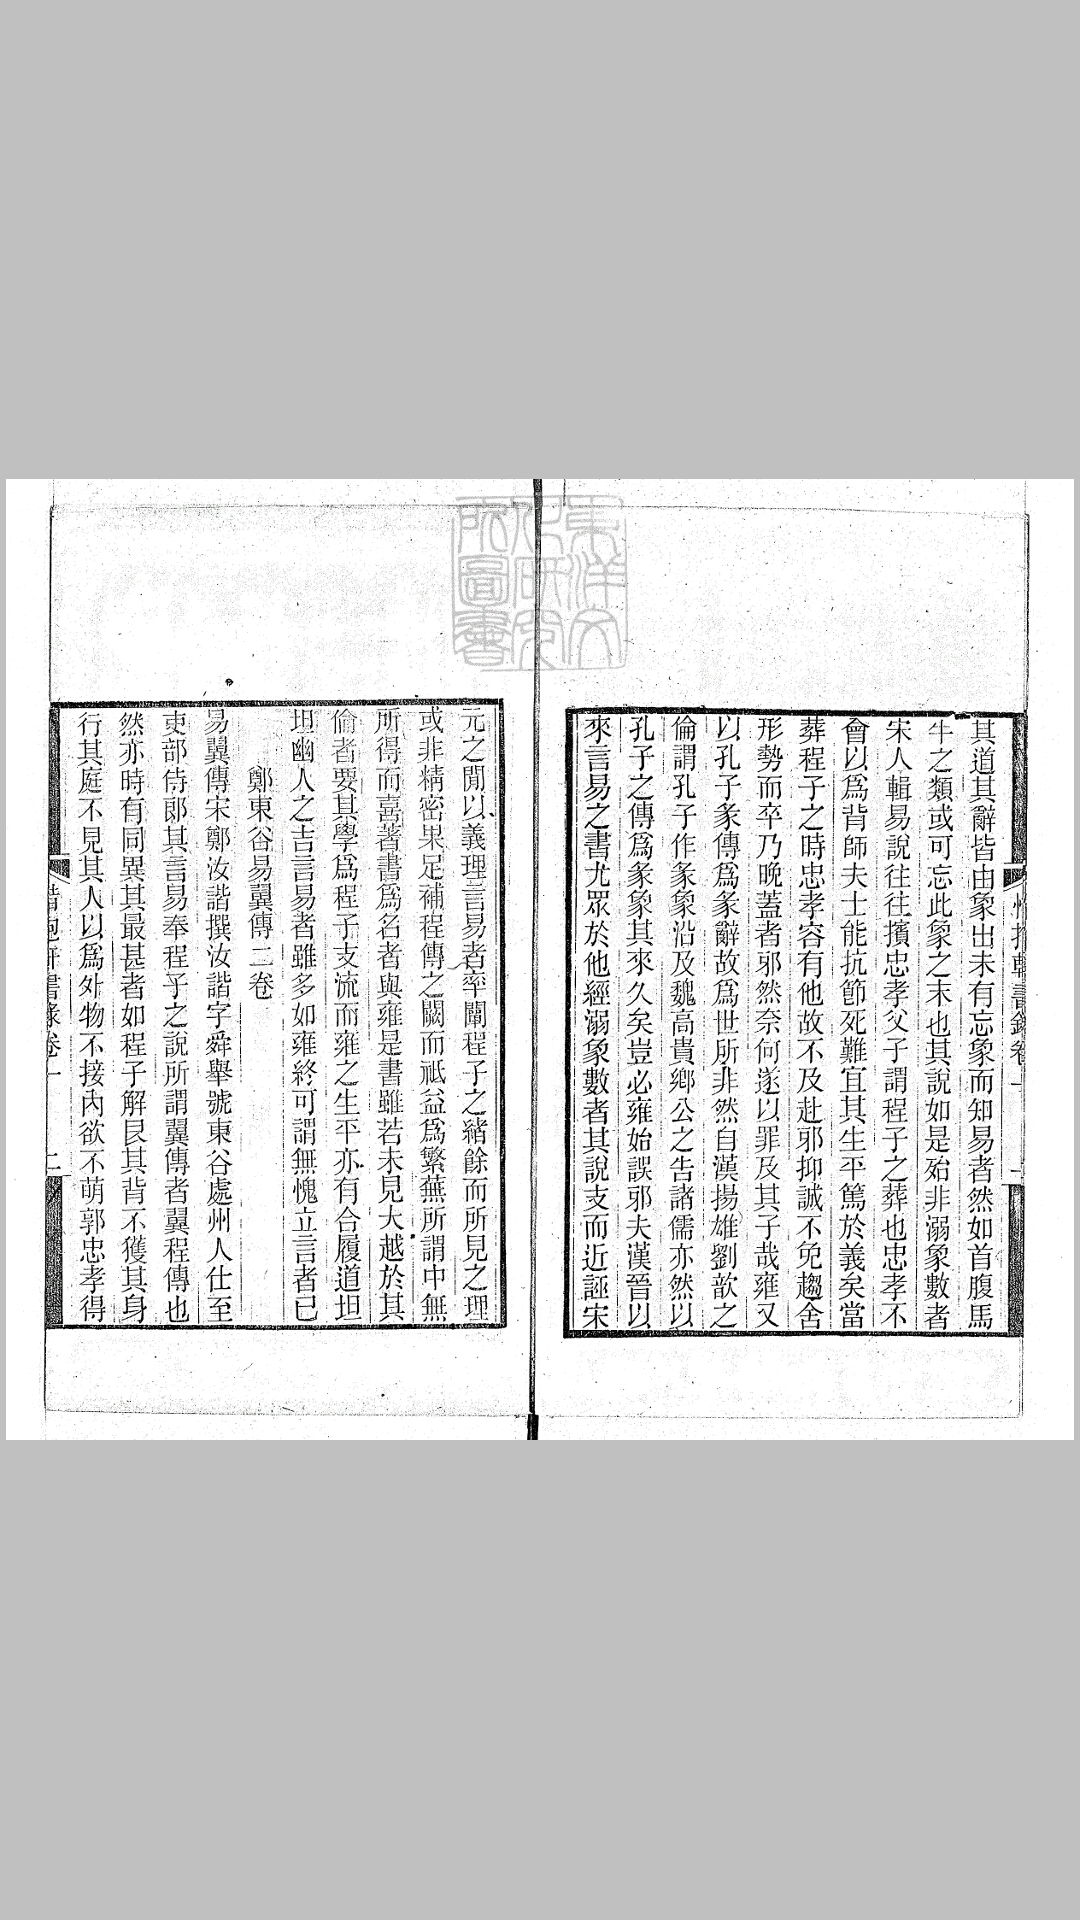 其道其辭皆由象出未有忘象而知易者然如首腹馬
牛之類或可忘此象之末也其說如是殆非溺象數者
宋人輯易說往往擯忠孝父子謂程子之葬也忠孝不
會以爲背師夫士能抗節死難宜其生平篤於義矣當
葬程子之時忠孝容有他故不及赴邪抑誠不免趨舍
形勢而卒乃晚蓋者邪然奈何遂以罪及其子哉雍又
以孔子彖傳爲彖辭故爲世所非然自漢揚雄劉歆之
倫謂孔子作彖象沿及魏高貴鄉公之告諸儒亦然以
孔子之傳爲彖象其來久矣豈必雍始誤邪夫漢晉以
來言易之書尤眾於他經溺象數者其說支而近誣宋
元之閒以義理言易者率闡程子之緒餘而所見之理
或非精密果足補程傳之闕而祗益爲繁蕪所謂中無
所得而喜著書爲名者與雍是書雖若未見大越於其
倫者要其學爲程子支流而雍之生平亦有合履道坦
坦幽人之吉言易者雖多如雍終可謂無愧立言者已
鄭東谷易翼傳二卷
易翼傳宋鄭汝諧撰汝諧字舜舉號東谷處州人仕至
吏部侍郎其言易奉程子之說所謂翼傳者翼程傳也
然亦時有同異其最甚者如程子解艮其背不獲其身
行其庭不見其人以爲外物不接內欲不萌郭忠孝得
書錄卷一
二
東洋文化研究所圖書